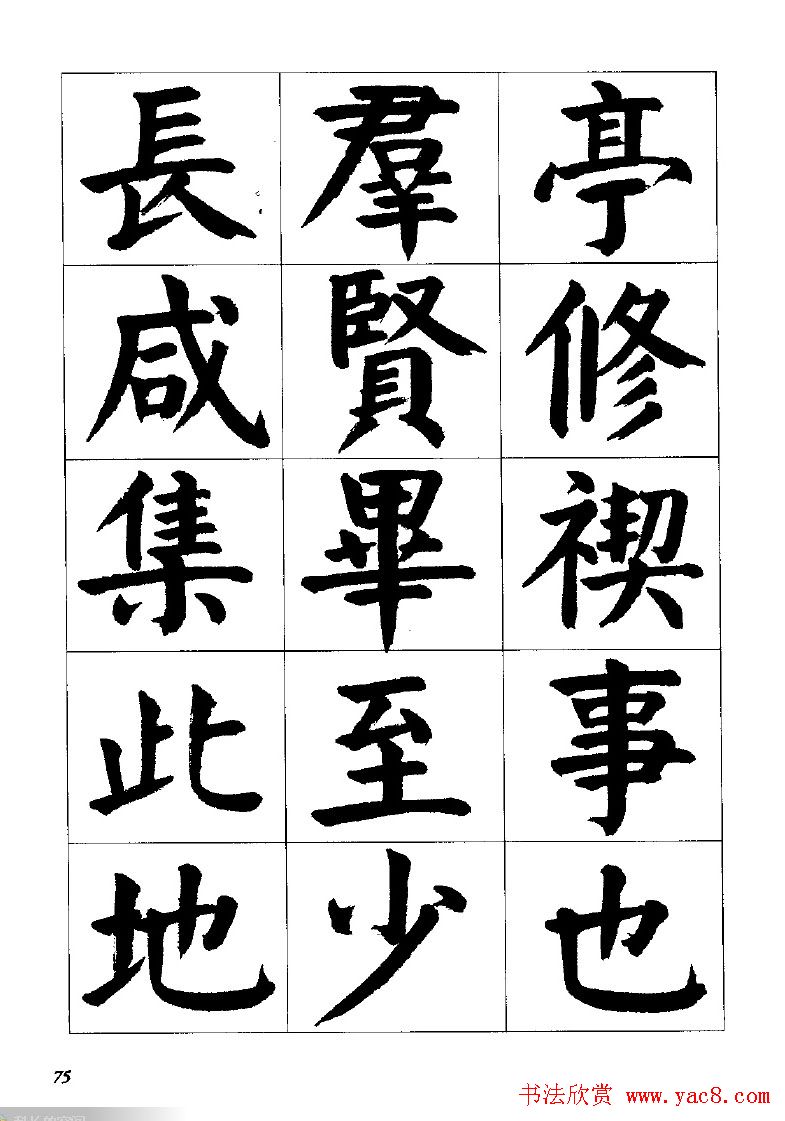 亭修禊事也
羣賢畢至少
長咸集此地
75
书法欣赏 www.yac8.com